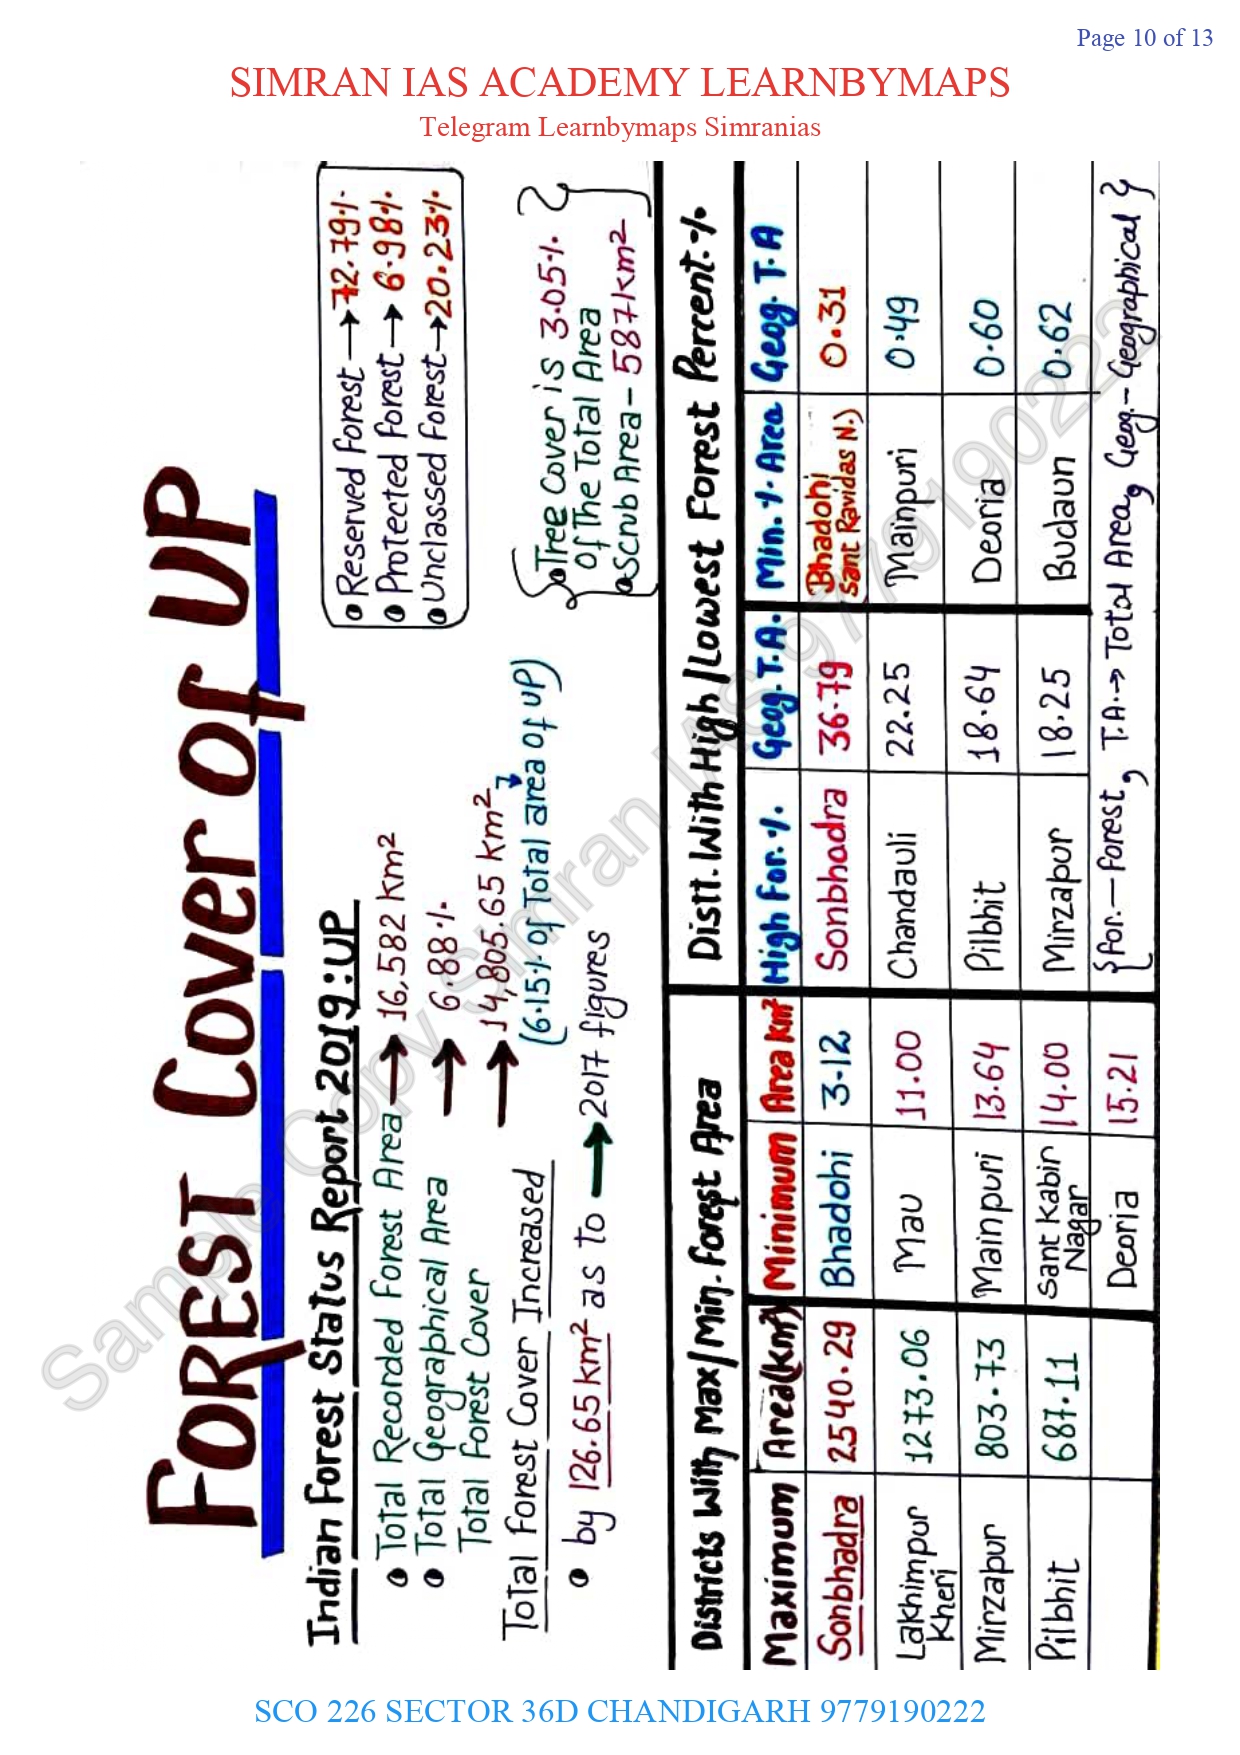 Page 10 of 13
SIMRAN IAS ACADEMY LEARNBYMAPS
Telegram Learnbymaps Simranias
FOREST Cover of UP
Indian Forest Status Report 2019:UP
• Total Recorded Forest Area → 16,582 km²
• Total Geographical Area → 6.88%
Total Forest Cover → 14,805.65 km²
(6.15% of Total area of UP)
Total Forest Cover Increased
• by 126.65 km² as to → 2017 figures
• Reserved Forest → 72.79%
• Protected Forest → 6.98%
• Unclassed Forest → 20.23%
• Tree Cover is 3.05%
of The Total Area
• Scrub Area - 587km²
Districts With Max/Min. Forest Area
Maximum Area(km²) Minimum Area km²
Sonbhadra 2540.29 Bhadohi 3.12
Lakhimpur Kheri 1273.06 Mau 11.00
Mirzapur 803.73 Mainpuri 13.64
Pilbhit 687.11 Sant Kabir Nagar 14.00
Deoria 15.21
Distt. With High/Lowest Forest Percent.%
High For.% Geog.T.A. Min.% Area Geog. T.A
Sonbhadra 36.79 Bhadohi Sant Ravidas N.) 0.31
Chandauli 22.25 Mainpuri 0.49
Pilbhit 18.64 Deoria 0.60
Mirzapur 18.25 Budaun 0.62
{For.—Forest, T.A.→Total Area, Geog.-Geographical}
Sample Copy Simran IAS 9779190222
SCO 226 SECTOR 36D CHANDIGARH 9779190222